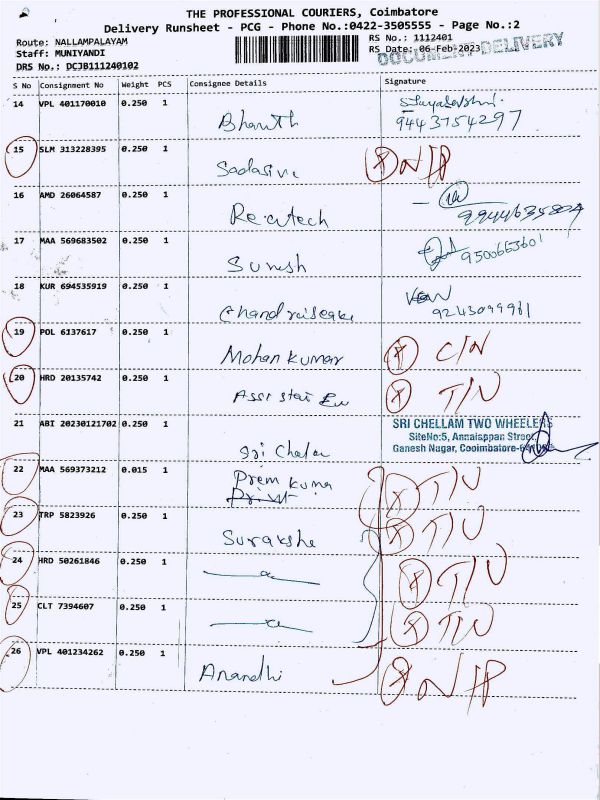 THE PROFESSIONAL COURIERS, Coimbatore
Delivery Runsheet - PCG - Phone No.:0422-3505555 - Page No.:2
Route: NALLAMPALAYAM RS No.: 1112401
Staff: MUNIYANDI RS Date: 06-Feb-2023 DOCUMENT DELIVERY
DRS No.: DCJB111240102
S No Consignment No Weight PCS Consignee Details Signature
14 VPL 401170010 0.250 1 Bharath 9443754297
15 SLM 313228395 0.250 1 Sadasiva
16 AMD 26064587 0.250 1 9944635804
17 MAA 569683502 0.250 1 Suresh 9500663601
18 KUR 694535919 0.250 1 9243099981
19 POL 6137617 0.250 1 Mohan Kumar C/N
20 HRD 20135742 0.250 1 T/N
21 ABI 20230121702 0.250 1 Sri SRI CHELLAM TWO WHEELERS
SiteNo:5, Annaisppan Street,
Ganesh Nagar, Cooimbatore-
22 MAA 569373212 0.015 1 Prem Kumar T/N
23 TRP 5823926 0.250 1 Suraksha T/N
24 HRD 50261846 0.250 1 T/N
25 CLT 7394607 0.250 1 T/N
26 VPL 401234262 0.250 1 Anandhi